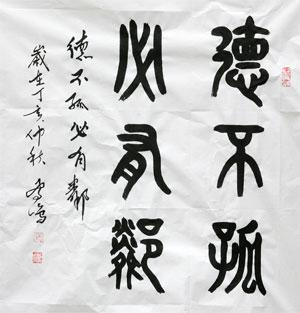 德不孤
必有鄰
德不孤必有鄰
歲在丁亥仲秋